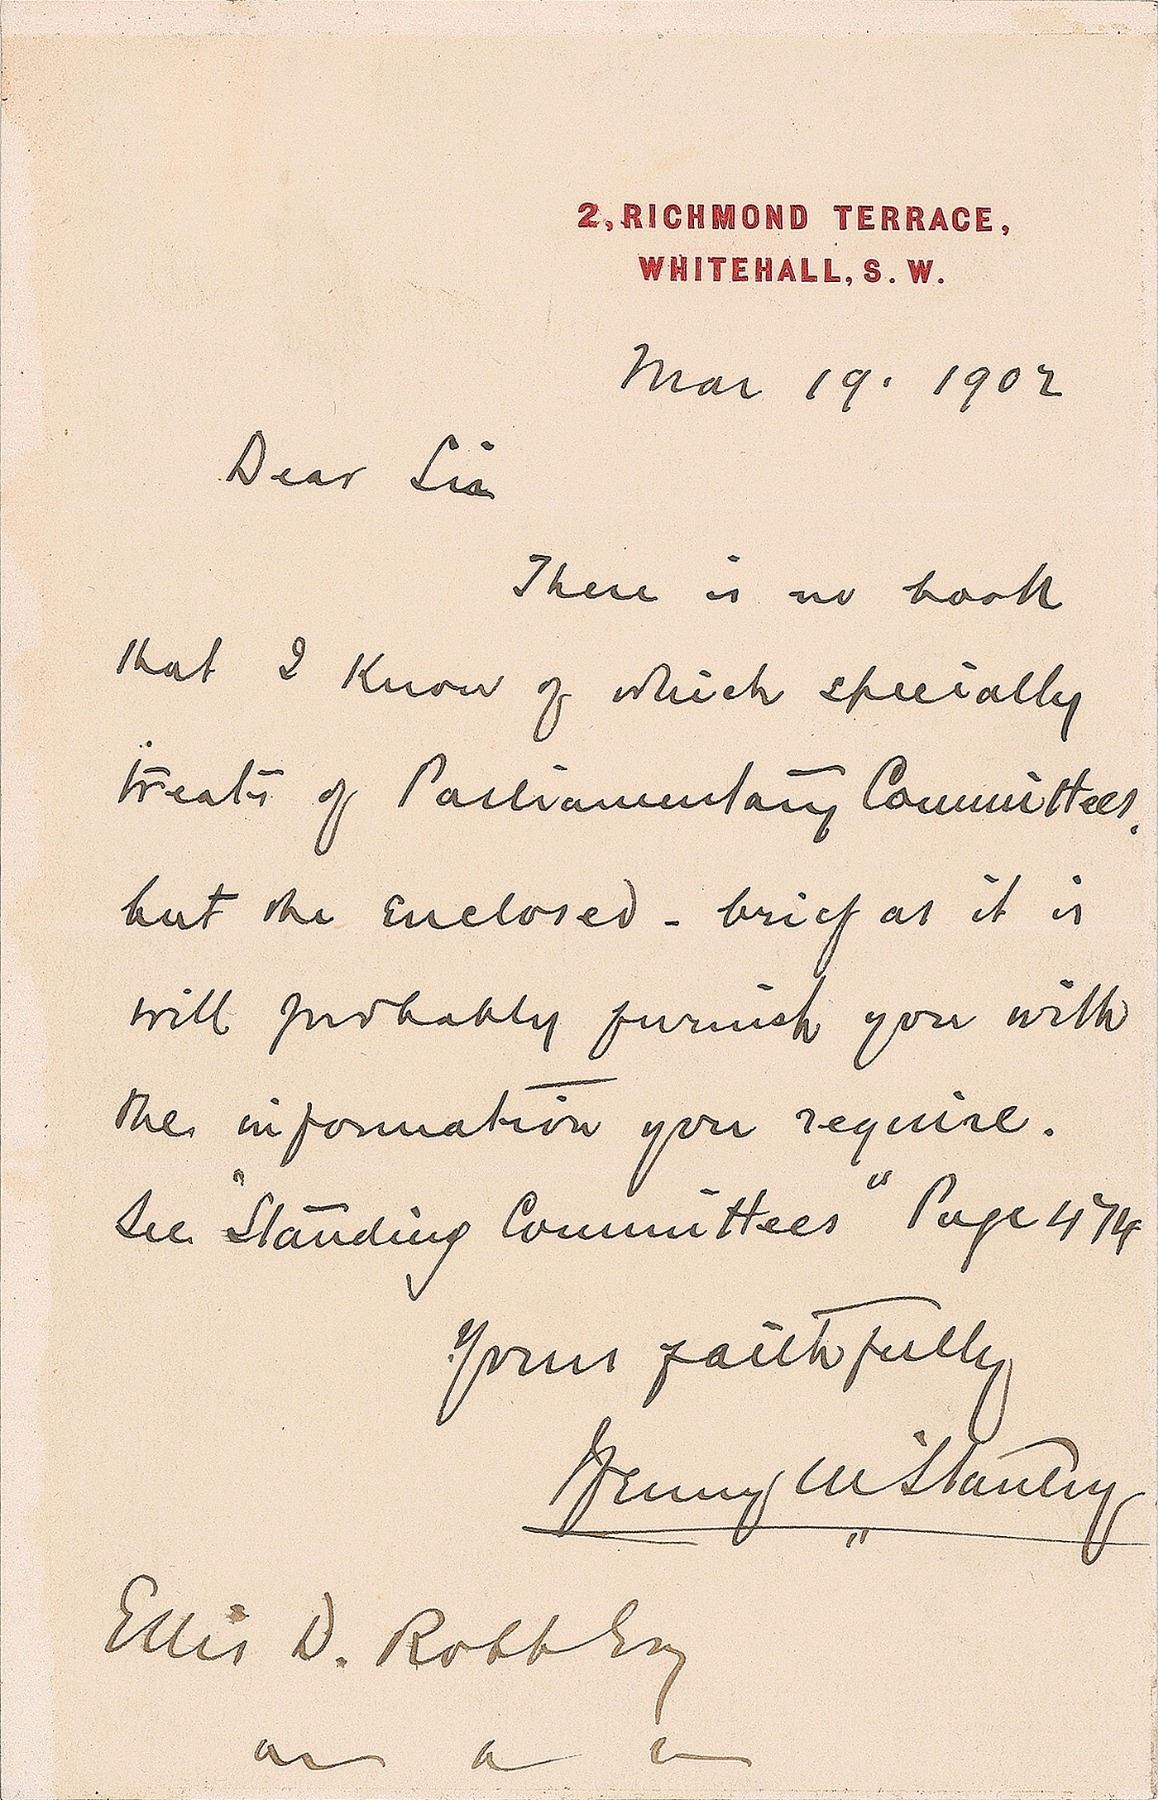 2, RICHMOND TERRACE,
WHITEHALL, S. W.
Mar 19. 1902
Dear Sir
There is no book
that I know of which specially
treats of Parliamentary Committees,
but the enclosed - brief as it is
will probably furnish you with
the information you require.
See "Standing Committees" Page 474
Yours faithfully
Henry M Stanley
Ellis D. Robb Esq